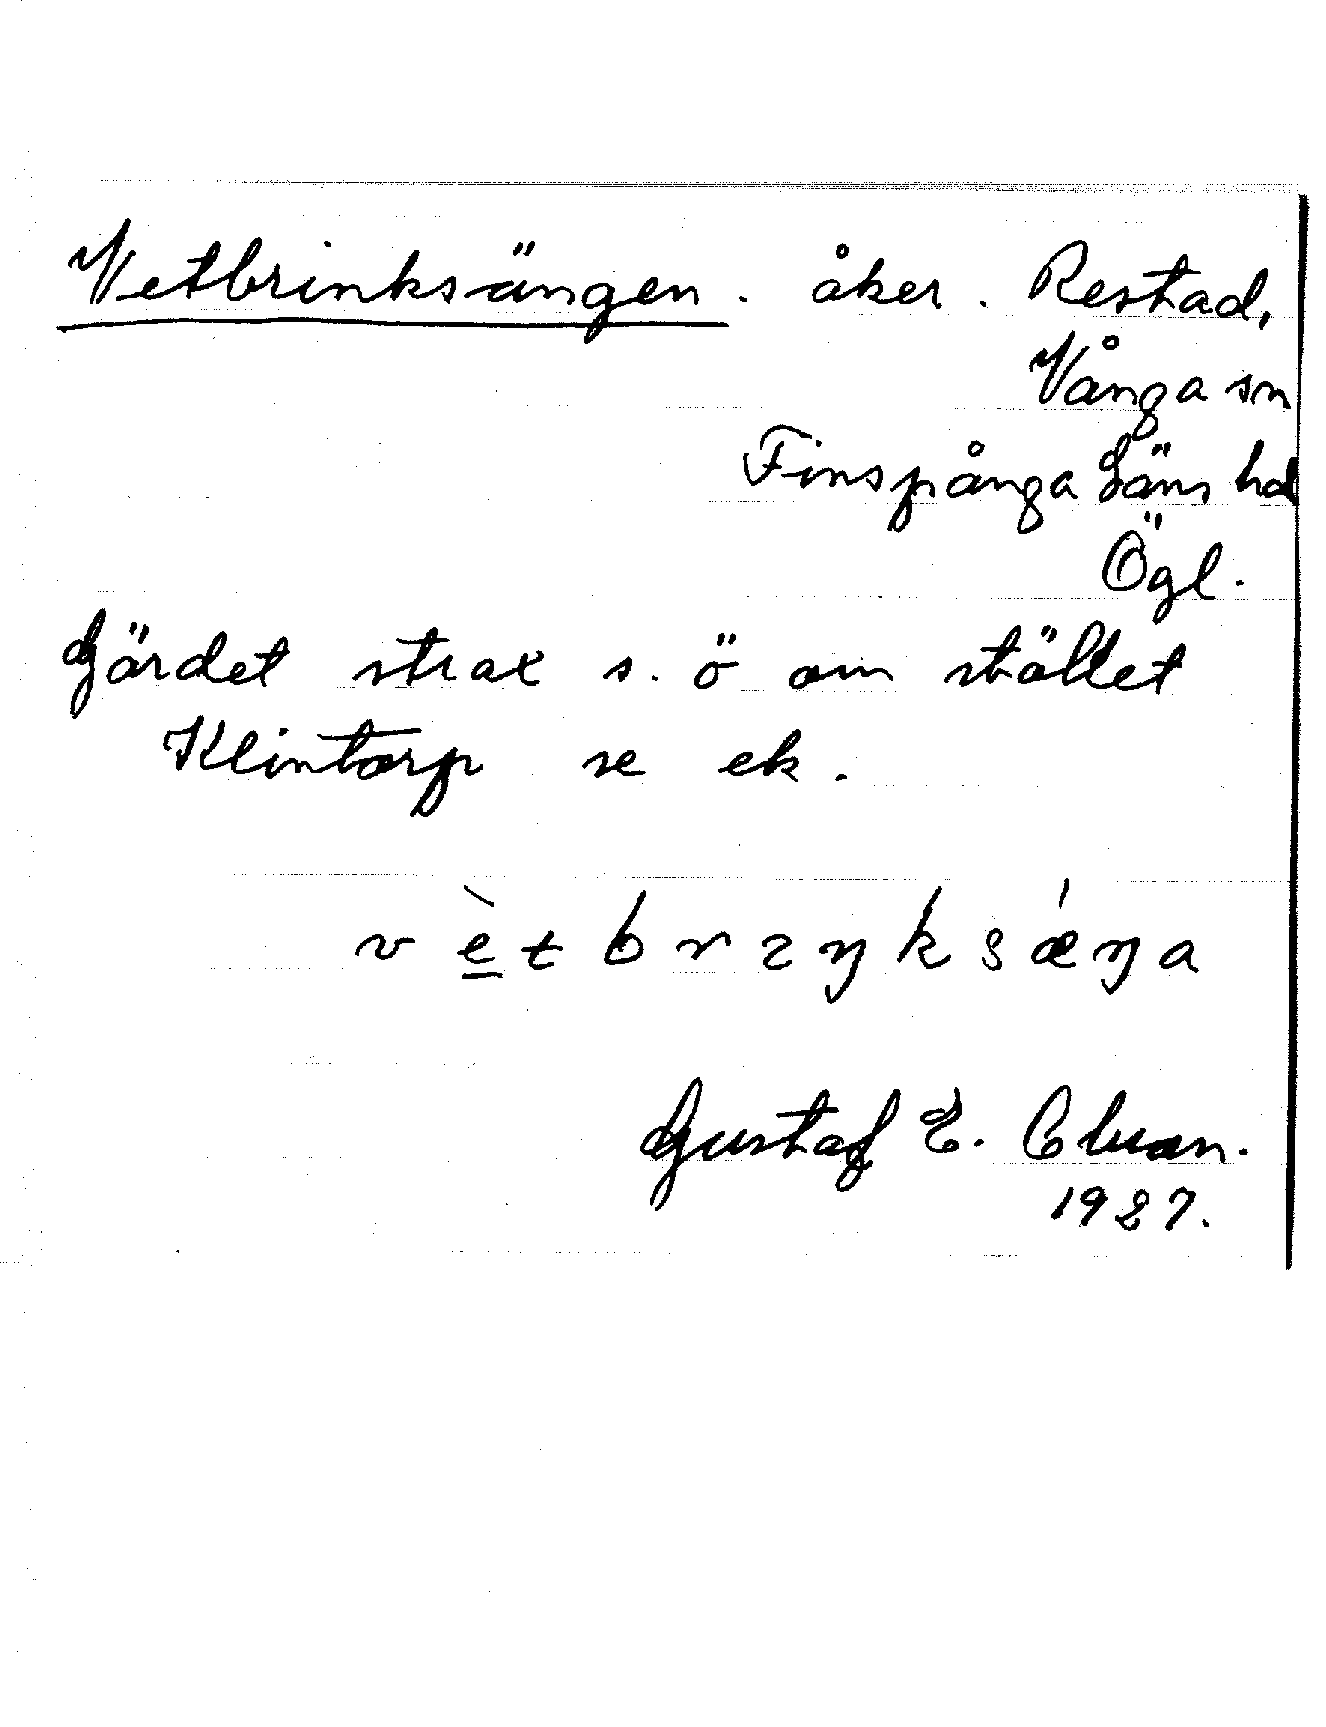 Vetbrinksängen. åker. Restad,
Vånga sn
Finspånga Läns hd
Ögl.
Gärdet strax s.ö om stället
Klintorp se ek.
vètbrıŋksǽŋa
Gustaf E.
1927.